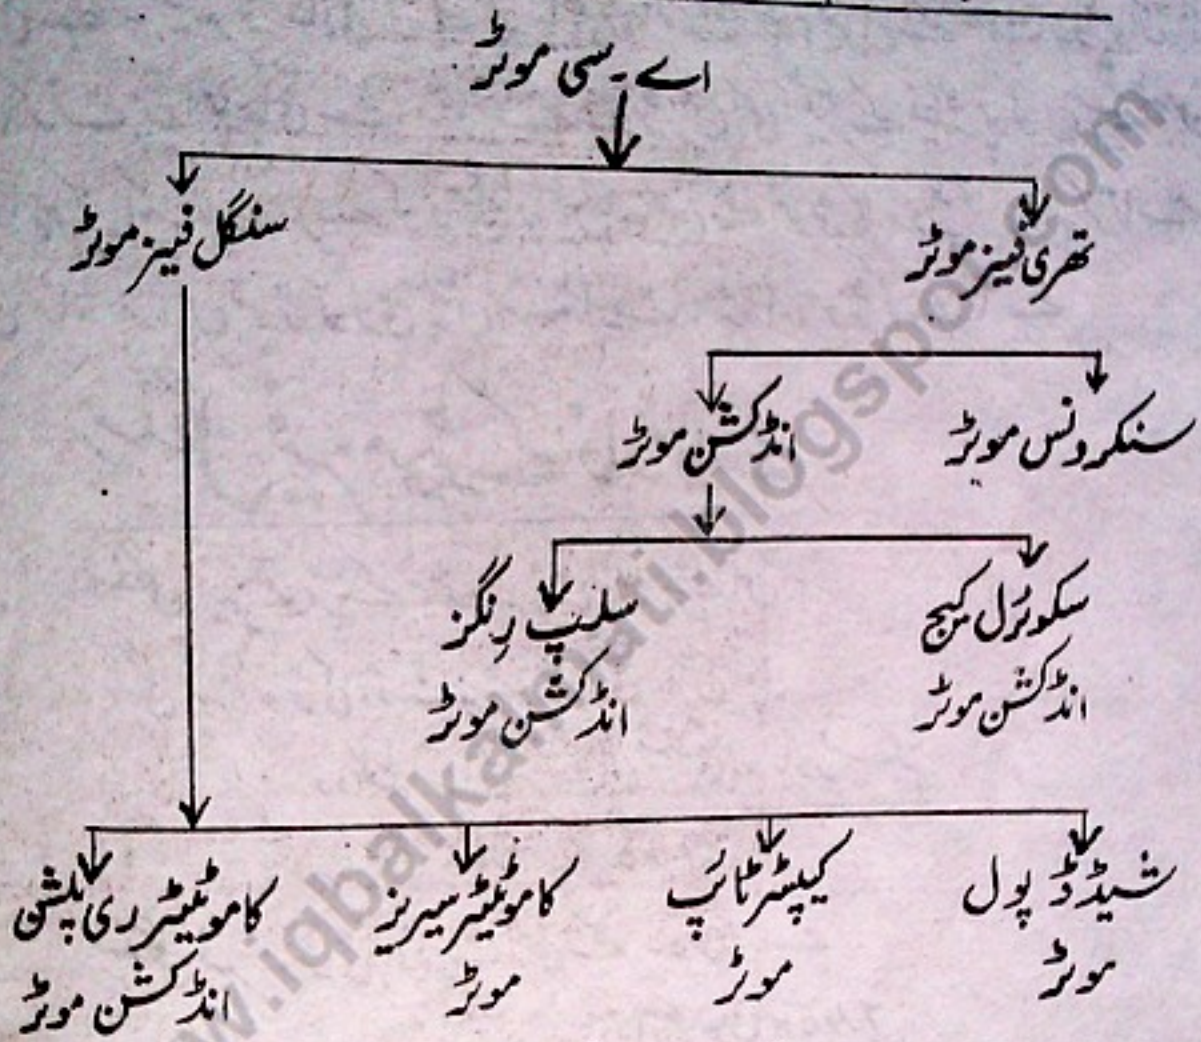 اے۔سی موٹر
تھری فیز موٹر
سنگل فیز موٹر
سنکرونس موٹر
انڈکشن موٹر
سکوئرل کیج
انڈکشن موٹر
سلپ رِنگز
انڈکشن موٹر
شیڈڈ پول
موٹر
کیپسٹر ٹائپ
موٹر
کاموٹیٹر سیریز
موٹر
کاموٹیٹر ری پلشن
انڈکشن موٹر
www.iqbalkalmati.blogspot.com